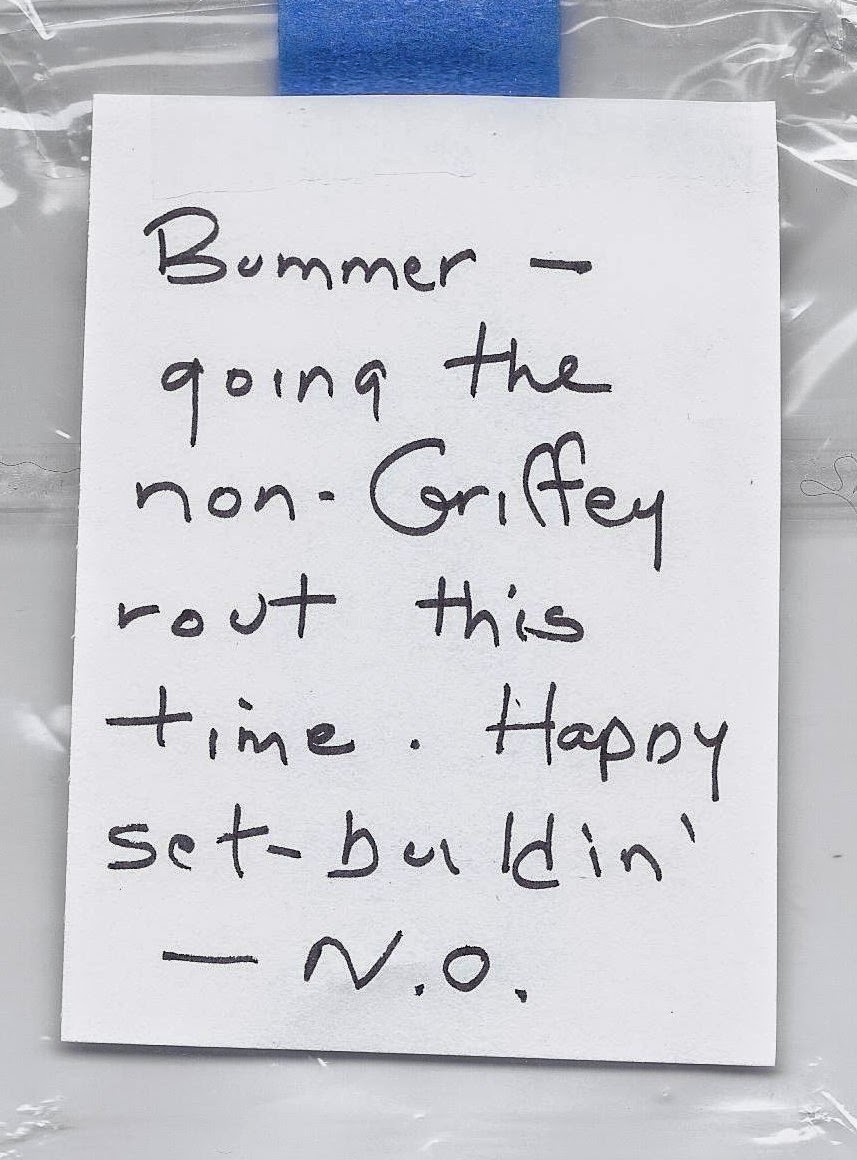 Bummer –
going the
non-Griffey
rout this
time. Happy
set-buildin'
– N.O.